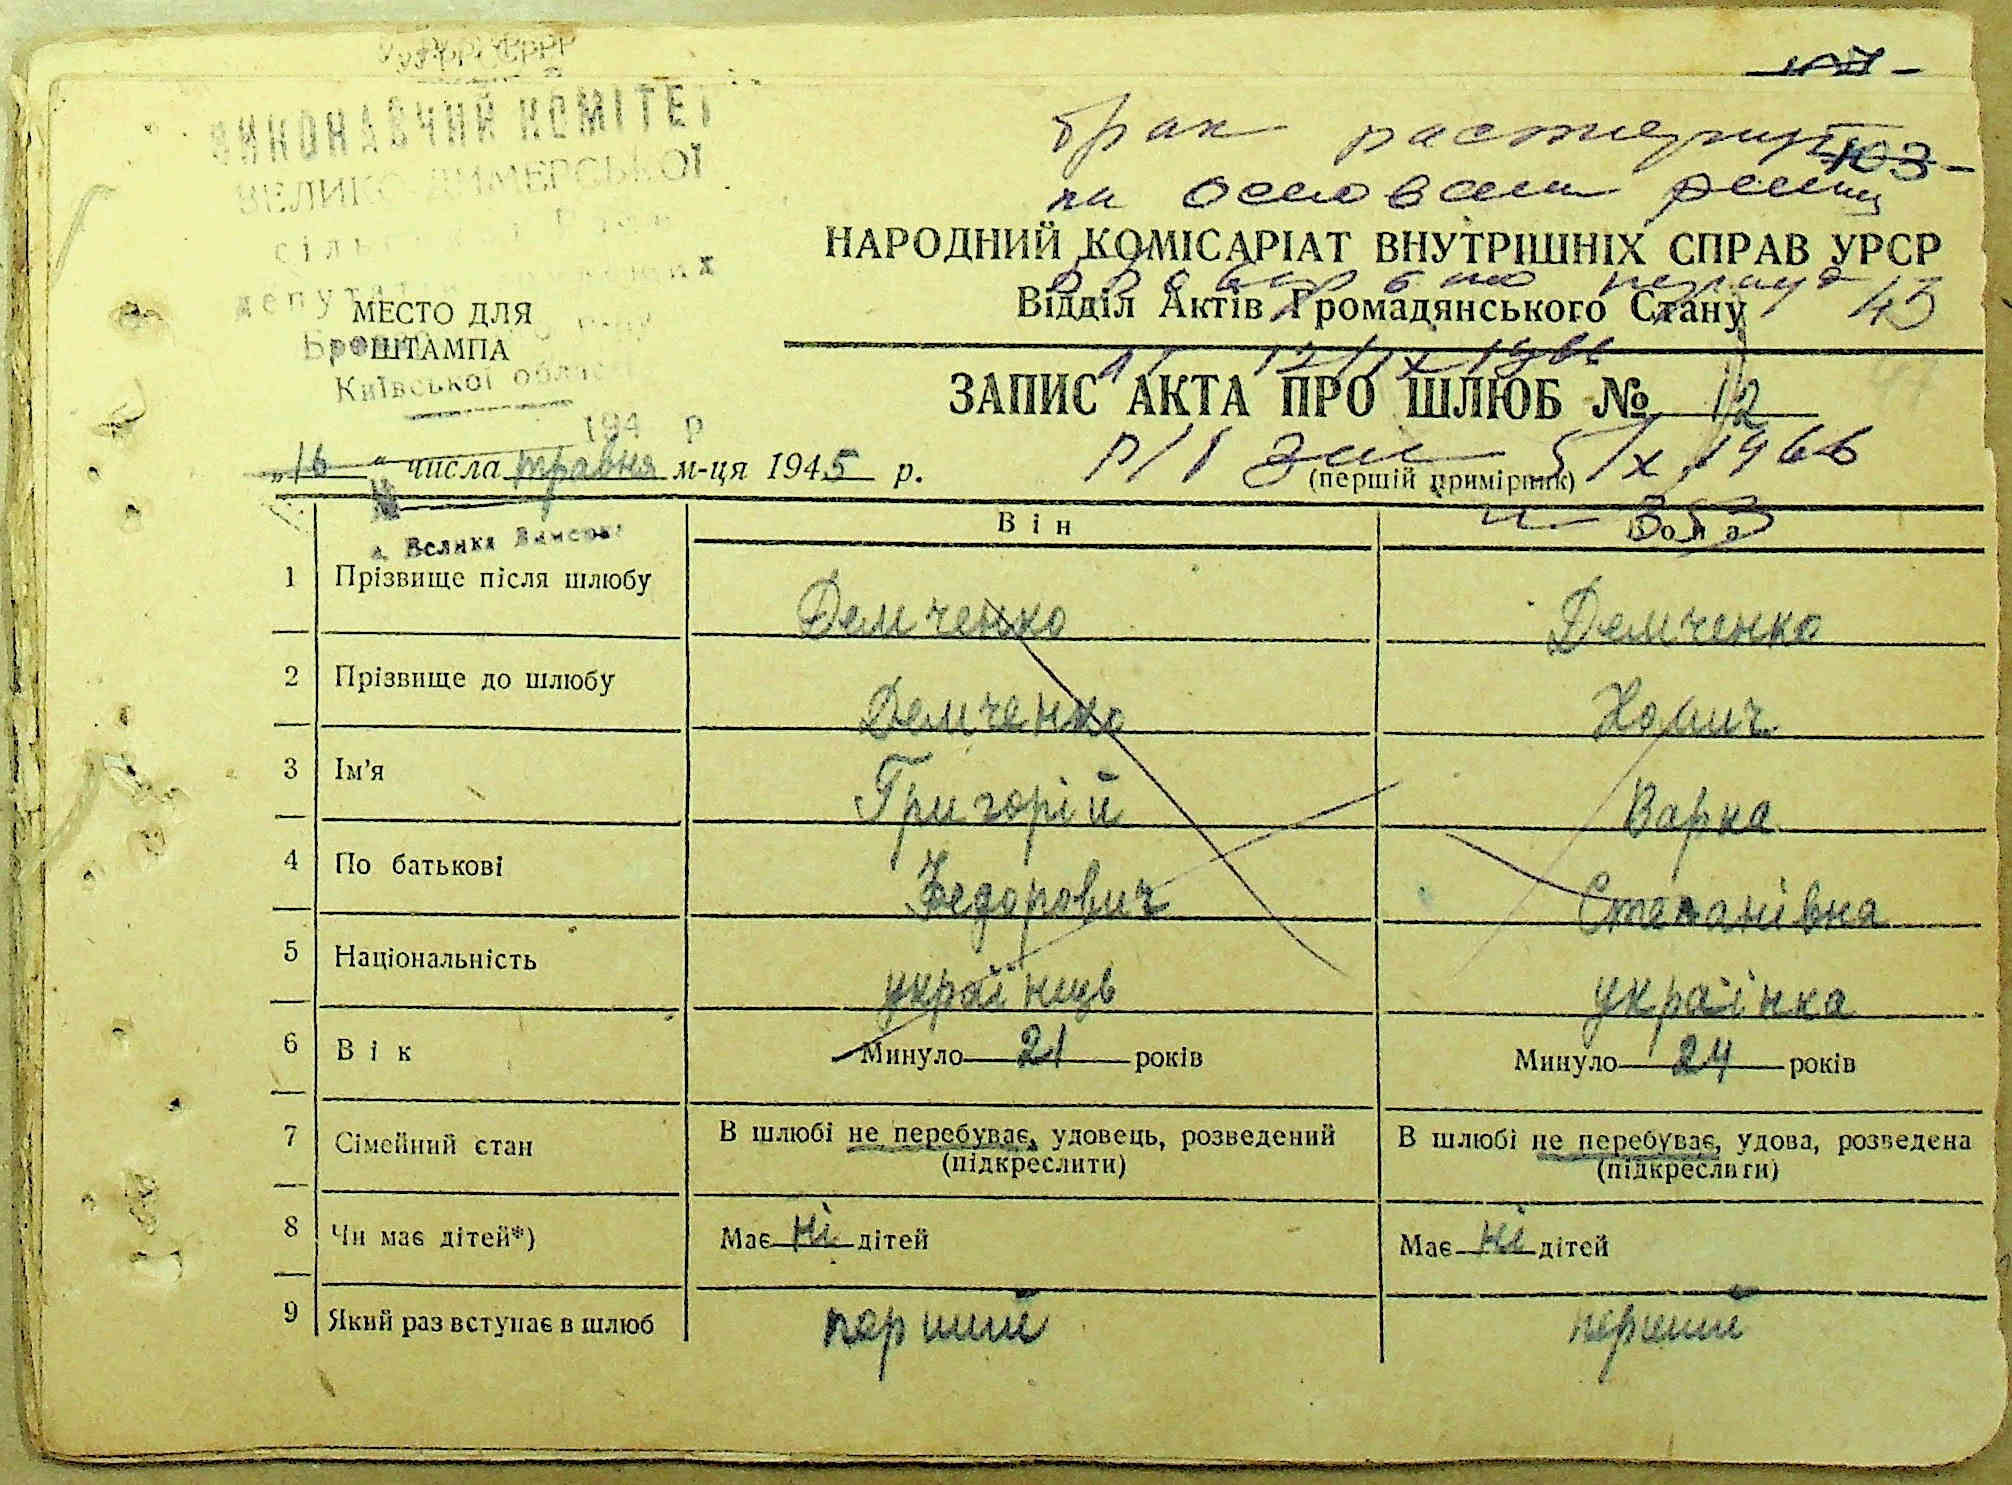 УРСР
ВИКОНАВЧИЙ КОМІТЕТ
ВЕЛИКО-ДИМЕРСЬКОЇ
депутатів
Київської області
194 р
МЕСТО ДЛЯ
ШТАМПА
с. Велика Димерка
брак расторгнут
103
на основании решен
НАРОДНИЙ КОМІСАРІАТ ВНУТРІШНІХ СПРАВ УРСР
Відділ Актів Громадянського Стану
43
от 12/IX 1966
ЗАПИС АКТА ПРО ШЛЮБ № 12
„16“ числа травня м-ця 1945 р.
5/X 1966
(перший примірник)
№ 353
Він Вона
1 Прізвище після шлюбу Демченко Демченко
2 Прізвище до шлюбу Демченко Хомич
3 Ім'я Григорій Варка
4 По батькові Федорович Степанівна
5 Національність українець українка
6 Вік Минуло 21 років Минуло 24 років
7 Сімейний стан В шлюбі не перебуває, удовець, розведений (підкреслити) В шлюбі не перебуває, удова, розведена (підкреслити)
8 Чи має дітей*) Має ні дітей Має ні дітей
9 Який раз вступає в шлюб перший перший